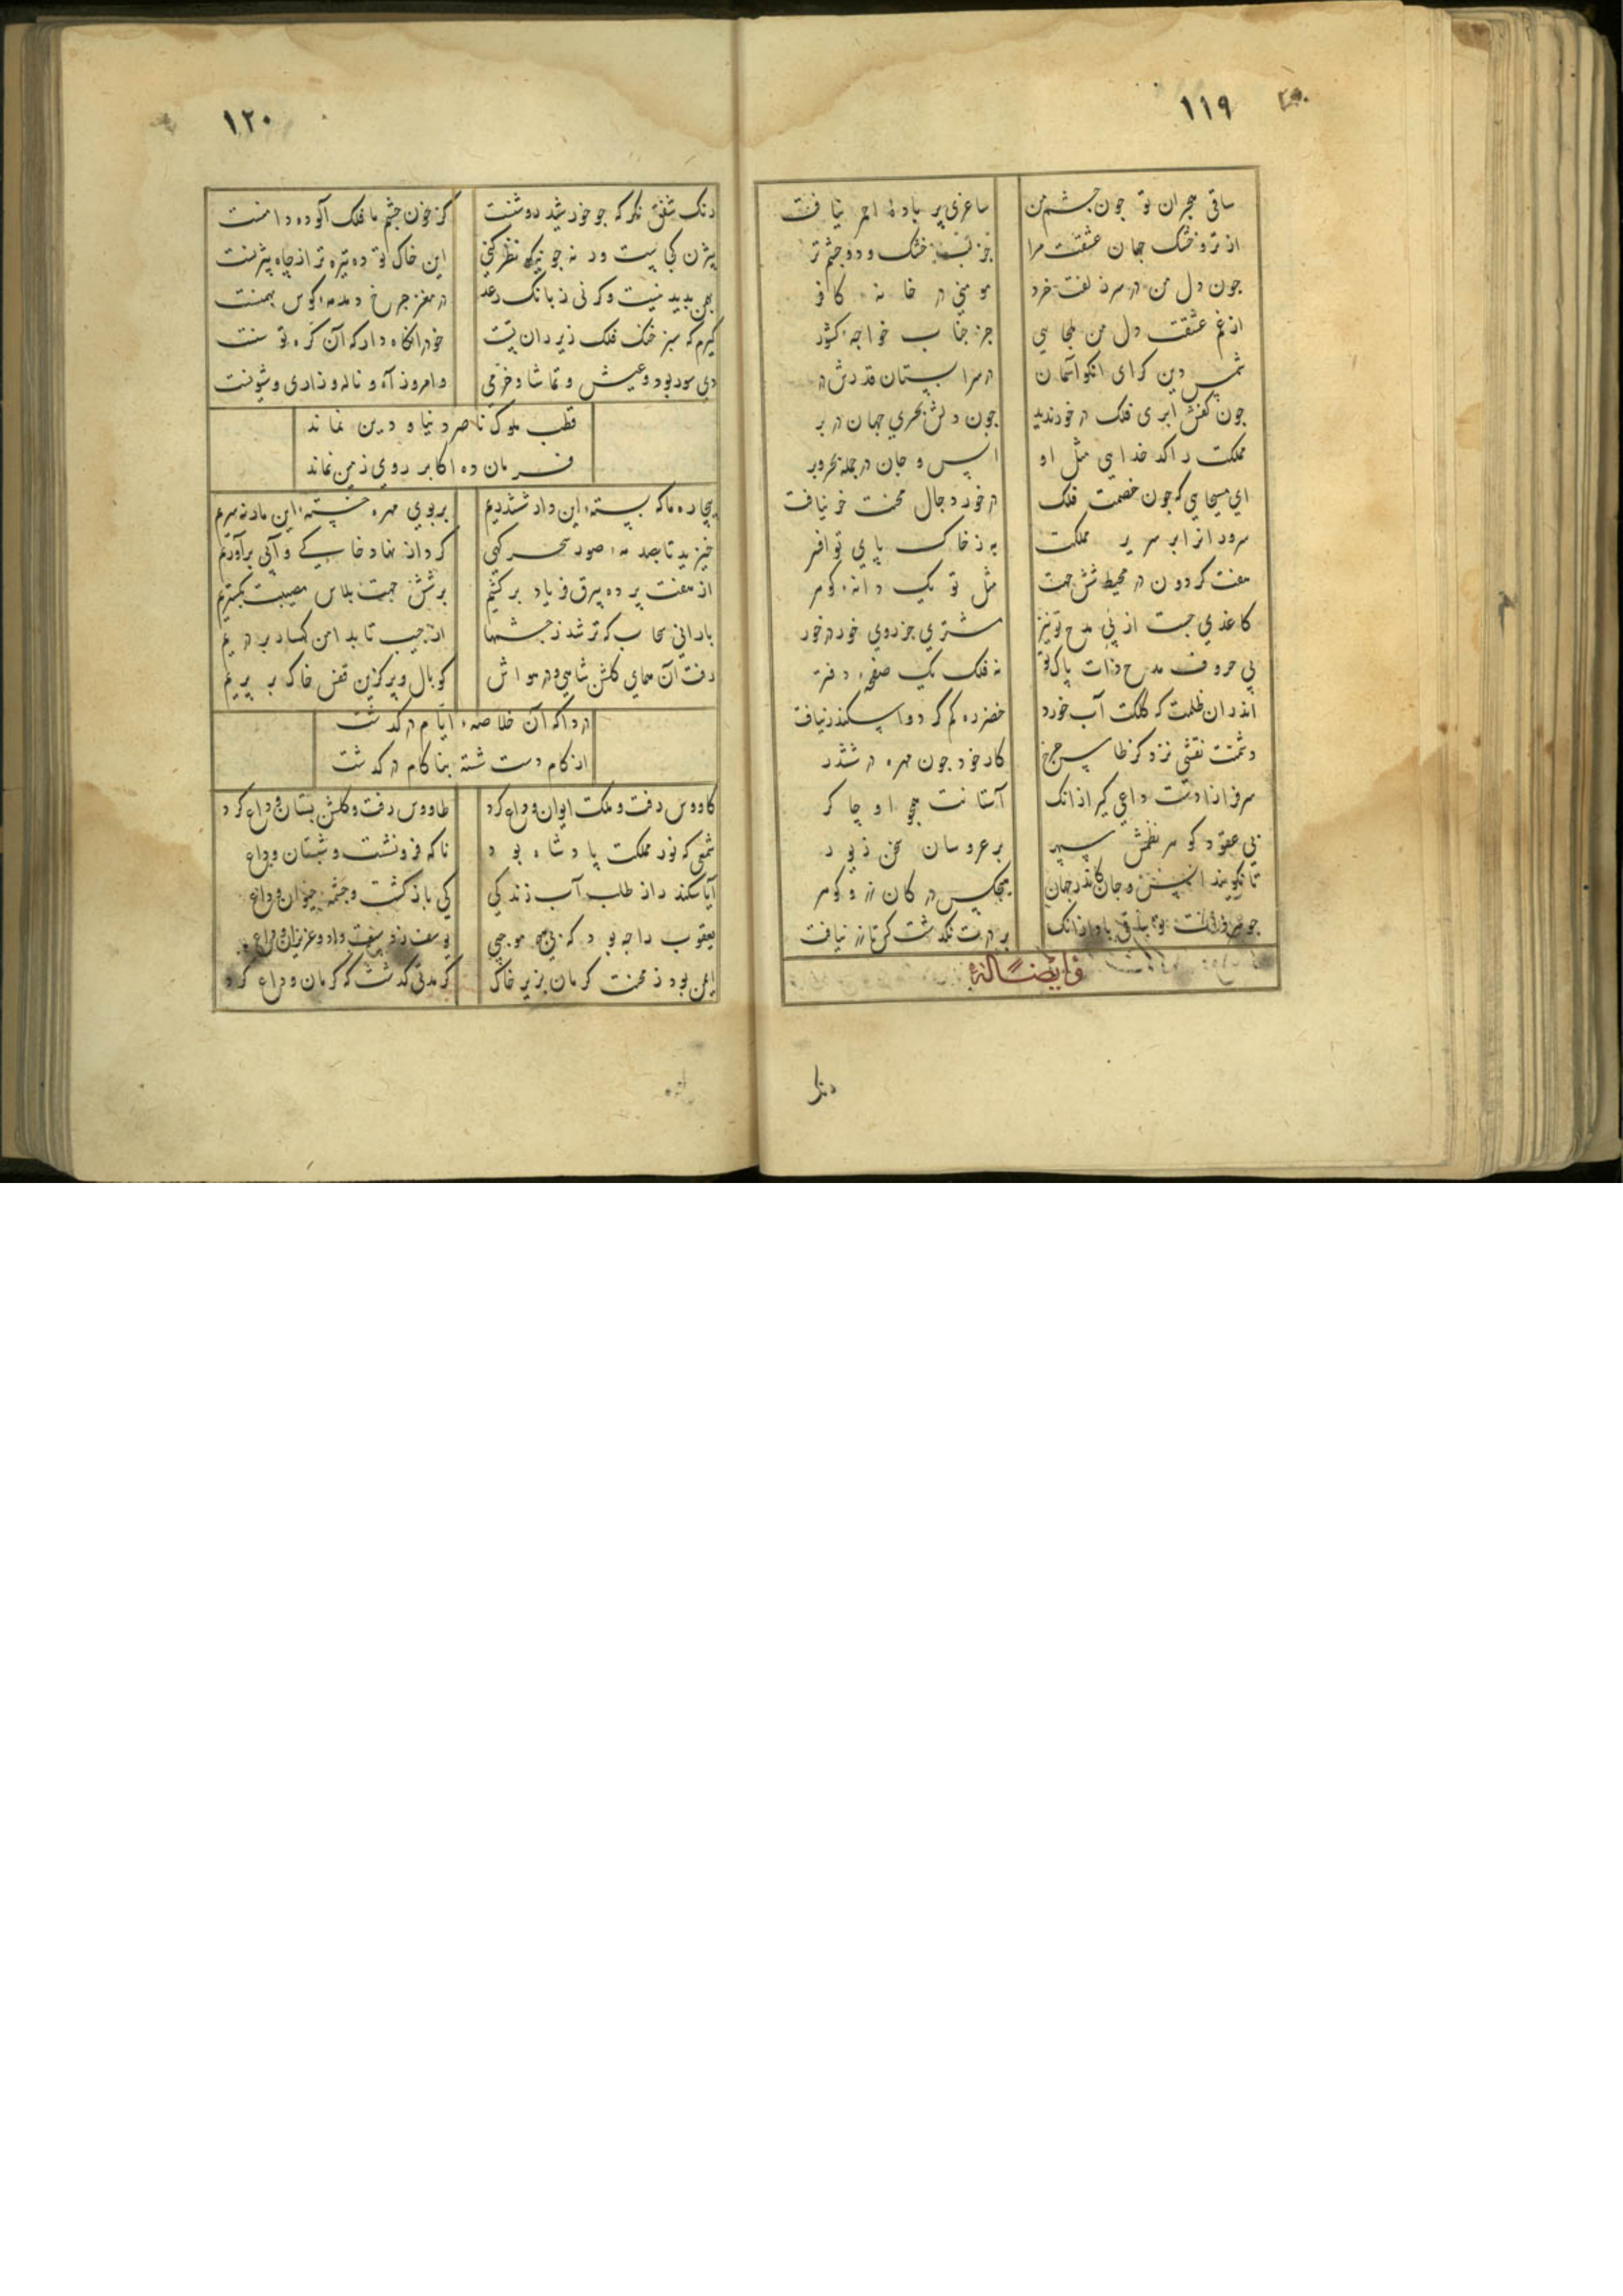 ١١٩
ساقی هجران تو جون چشم من ساغری پر بادهٔ احمر نیافت
از تر و خشک جهان عشقت مرا جز لب خشک و دو چشم تر
جون دل من در سر زلفت خرد مومنی در خانهٔ کافر
از غم عشقت دل من ملجایی جز جناب خواجهٔ کشور
شمس دین کز رای انکو آسمان در سرابستان قدرش در
جون کفش ابری فلک در خور ندید جون دلش بحری جهان در بر
مملکت را کدخدایی مثل او انس و جان در جمله بحر و بر
ای مسیحایی که جون خصمت فلک در خور دجال محنت خر نیافت
سرور از ابر سریر مملکت به ز خاک پای تو افسر
هفت کردون در محیط شش جهت مثل تو یک دانهٔ کوهر
کاغذی جست از پی مدح تو تیر مشتری جز روی خور در خور
بی حروف مدح ذات پاک تو نه فلک یک صفحهٔ دفتر
اندران ظلمت که کلکت آب خورد خضر ره کم کرد و اسکندر نیافت
دشمنت نقشی نزد کز طاس جرخ کار خود جون مهره در ششدر
سرفرازا دست داعی کیر ازانک آستانت همچو او چاکر
بی عقود کوهر نظمش سپهر بر عروسان سخن زیور
تا نکویند انس و جان کاندر جهان هیچکس در کان زر و کوهر
بر درت نکذشت کس تا زر نیافت
وایضاً له
رنک
١٢٠
رنک شفق نکر که جو خورشید روشنست کز خون چشم ما فلک آلوده دامنست
بیژن کجاست ورنه جو نیکو نظر کنی این خاک توده تیره تر از چاه بیژنست
بهمن بدید نیست وکرنی ز بانک رعد در مغز جرخ دمدمهٔ کوس بهمنست
کیرم که سبز خنک فلک زیر ران تست خود را نکاه دار که آن کره توسنست
دی سور بود و عیش و تماشا و خرمی و امروز آه و ناله و زاری و شیونست
قطب ملوک ناصر دنیا و دین نماند
فرمان ده اکابر روی زمین نماند
بیچاره ما که بستهٔ این وادی ششدریم بر بوی مهره خستهٔ این مار نه سریم
خیزید تا بصدمهٔ صور سحرکهی کرد از نهاد خاکی و آبی برآوریم
از هفت پرده بیرق فریاد برکشیم بر شش جهت بلاس مصیبت بکستریم
بارانی سحاب که تر شد ز چشمها از جیب تا بدامن کهسار بر دریم
رفت آن همای کلشن شاهی و در هواش کو بال و پر کزین قفس خاک بر پریم
دردا که آن خلاصهٔ ایام در کذشت
از کام دست شسته بناکام در کذشت
کاووس رفت و ملکت ایوان وداع کرد طاووس رفت و کلشن بستان وداع کرد
شمعی که نور مملکت پادشاه بود ناکه فرو نشست و شبستان وداع
آیا سکندر از طلب آب زندکی کی باز کشت و چشمهٔ حیوان وداع
یعقوب را چه بود که بی هیچ موجبی یوسف و عزیزان وداع
ایمن بود ز محنت کرمان بزیر خاک کز مدتی کذشت که کرمان وداع کرد